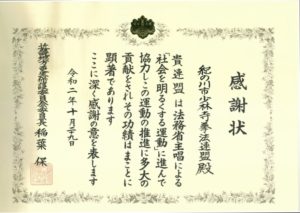 感謝状
紀の川市少林寺拳法連盟 殿
貴連盟は法務省主唱による
社会を明るくする運動に進んで
協力しこの運動の推進に多大の
貢献をされその功績はまことに
顕著であります
ここに深く感謝の意を表します
令和二年十月二十九日
稲葉 保